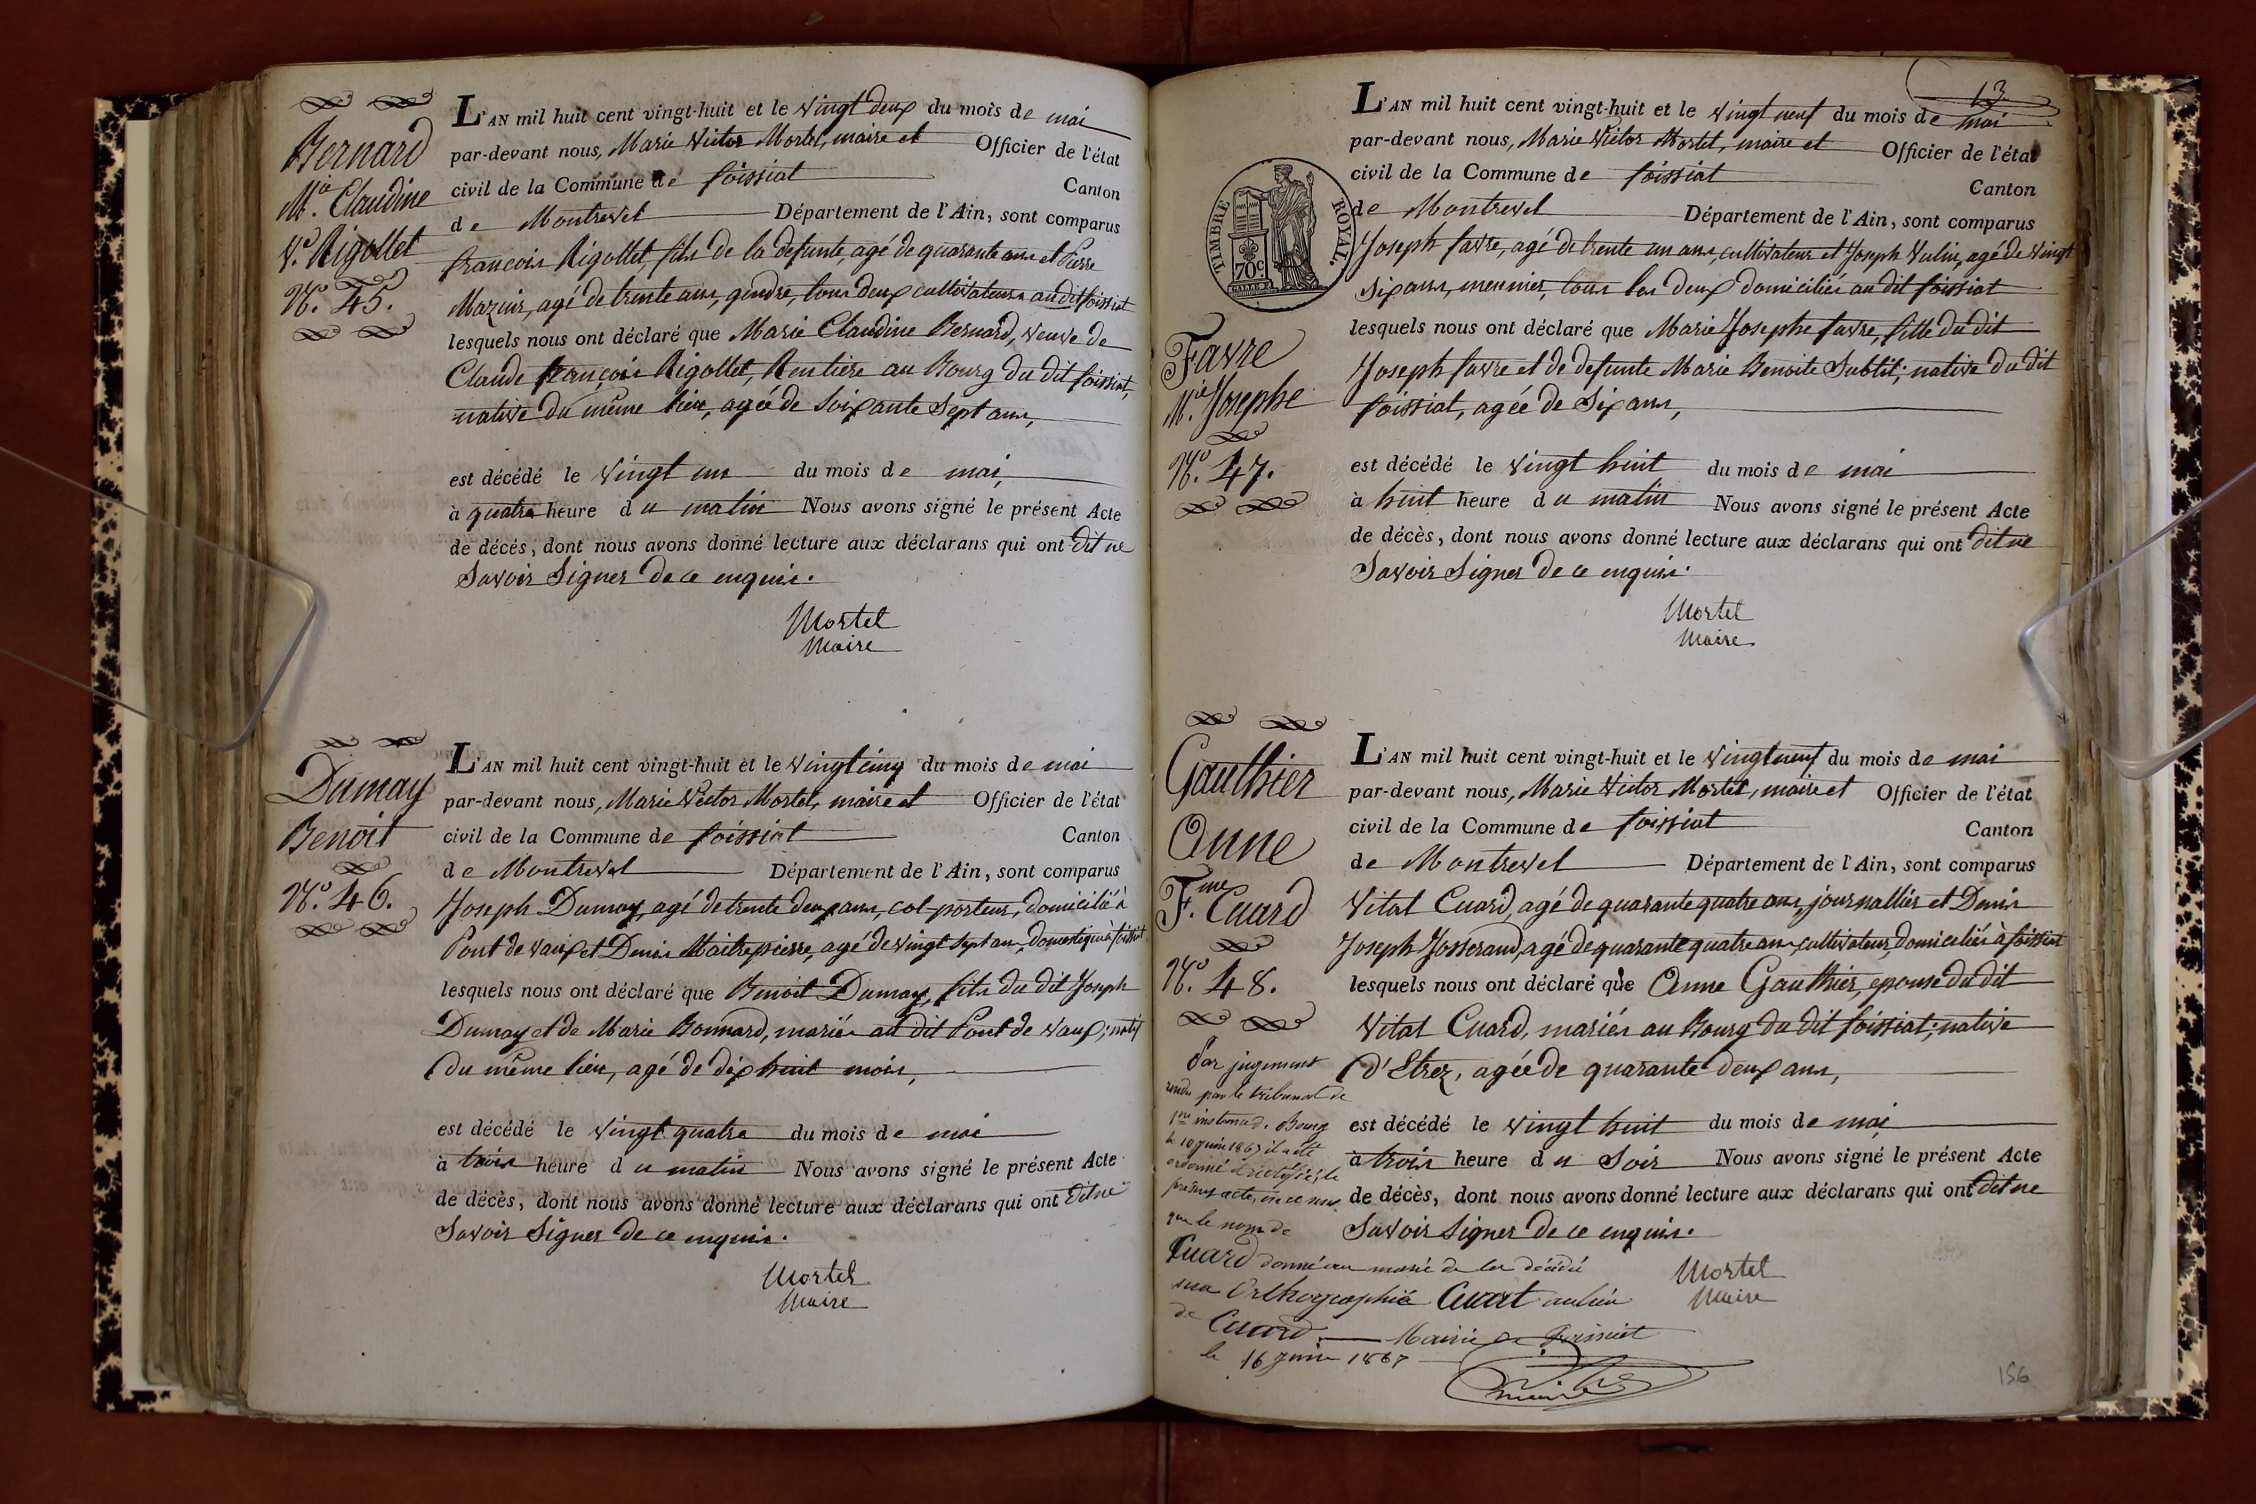 Bernard
Mie. Claudine
Ve. Rigollet
No. 45.
L'AN mil huit cent vingt-huit et le vingt deux du mois de mai
par-devant nous, Marie Victor Mortel, maire et Officier de l'état
civil de la Commune de foissiat Canton
de Montrevel Département de l'Ain, sont comparus
françois Rigollet, fils de la defunte, agé de quarante ans et Pierre
Mazuir, agé de trente ans, gendre, tous deux cultivateurs au dit foissiat
lesquels nous ont déclaré que Marie Claudine Bernard, veuve de
Claude françois Rigollet, Rentière au Bourg du dit foissiat,
native du même lieu, agée de soixante sept ans,
est décédé le vingt un du mois de mai,
à quatre heure du matin Nous avons signé le présent Acte
de décés, dont nous avons donné lecture aux déclarans qui ont dit ne
Savoir Signer de ce enquis.
Mortel
Maire
Dumay
Benoit
No. 46.
L'AN mil huit cent vingt-huit et le vingt cinq du mois de mai
par-devant nous, Marie Victor Mortel, maire et Officier de l'état
civil de la Commune de foissiat Canton
de Montrevel Département de l'Ain, sont comparus
Joseph Dumay, agé de trente deux ans, col-porteur, domicilié à
Pont de vaux et Denis Maitrepierre, agé de vingt sept ans, domestique à foissiat
lesquels nous ont déclaré que Benoit Dumay, fils du dit Joseph
Dumay et de Marie Bonnard, mariés au dit Pont de vaux; natif
du même lieu, agé de dix huit mois,
est décédé le vingt quatre du mois de mai
à trois heure du matin Nous avons signé le présent Acte
de décès, dont nous avons donné lecture aux déclarans qui ont dit ne
Savoir Signer de ce enquis.
Mortel
Maire
13
TIMBRE ROYAL.
70 c
Favre
Mie. Josephe
No. 47.
L'AN mil huit cent vingt-huit et le vingt neuf du mois de mai
par-devant nous, Marie Victor Mortel, maire et Officier de l'état
civil de la Commune de foissiat Canton
de Montrevel Département de l'Ain, sont comparus
Joseph favre, agé de trente un ans, cultivateur et Joseph Vulin, agé de vingt
six ans, meunier, tous les deux domiciliés au dit foissiat
lesquels nous ont déclaré que Marie Josephe favre, fille du dit
Joseph favre et de defunte Marie Benoite Subtil; native du dit
foissiat, agée de six ans,
est décédé le vingt huit du mois de mai
à huit heure du matin Nous avons signé le présent Acte
de décès, dont nous avons donné lecture aux déclarans qui ont dit ne
Savoir Signer de ce enquis.
Mortel
Maire
Gauthier
Anne
Fme. Cuard
No. 48.
L'AN mil huit cent vingt-huit et le vingt neuf du mois de mai
par-devant nous, Marie Victor Mortel, maire et Officier de l'état
civil de la Commune de foissiat Canton
de Montrevel Département de l'Ain, sont comparus
Vital Cuard, agé de quarante quatre ans, journallier et Denis
Joseph Josserand, agé de quarante quatre ans, cultivateur, domiciliés à foissiat
lesquels nous ont déclaré que Anne Gauthier, epouse du dit
Vital Cuard, mariés au Bourg du dit foissiat; native
d'Etrez, agée de quarante deux ans,
est décédé le vingt huit du mois de mai
à trois heure du Soir Nous avons signé le présent Acte
de décès, dont nous avons donné lecture aux déclarans qui ont dit ne
Savoir Signer de ce enquis.
Mortel
Maire
Par jugement
rendu par le tribunal de
1re instance d. Bourg
le 10 juin 1867 il a été
ordonné d rectifier le
présent acte, en ce sens
que le nom de
Cuard donné au marié de la décédé
sera Orthographié Cuart au lieu
de Cuard. Mairie de Foissiat
le 16 juin 1867
156